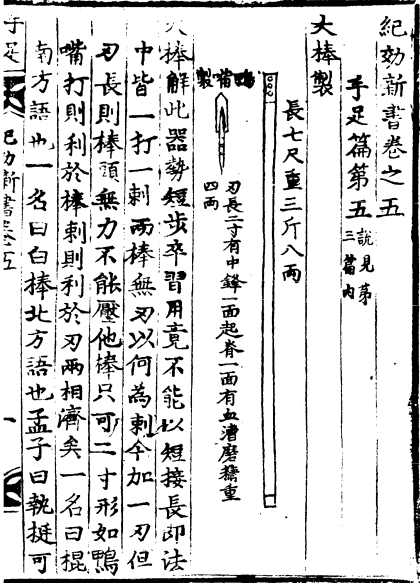 紀効新書卷之五
手足篇第五 說見第三篇內
大棒製
長七尺重三斤八兩
鴨嘴製
刃長二寸有中鋒一面起脊一面有血漕磨精重四兩
大棒解此器勢短步卒習用竟不能以短接長即法
中皆一打一刺兩棒無刃以何為刺今加一刃但
刃長則棒頭無力不能壓他棒只可二寸形如鴨
嘴打則利於棒刺則利於刃兩相濟矣一名曰棍
南方語也一名曰白棒北方語也孟子曰執挺可
手足
紀効新書卷五
一